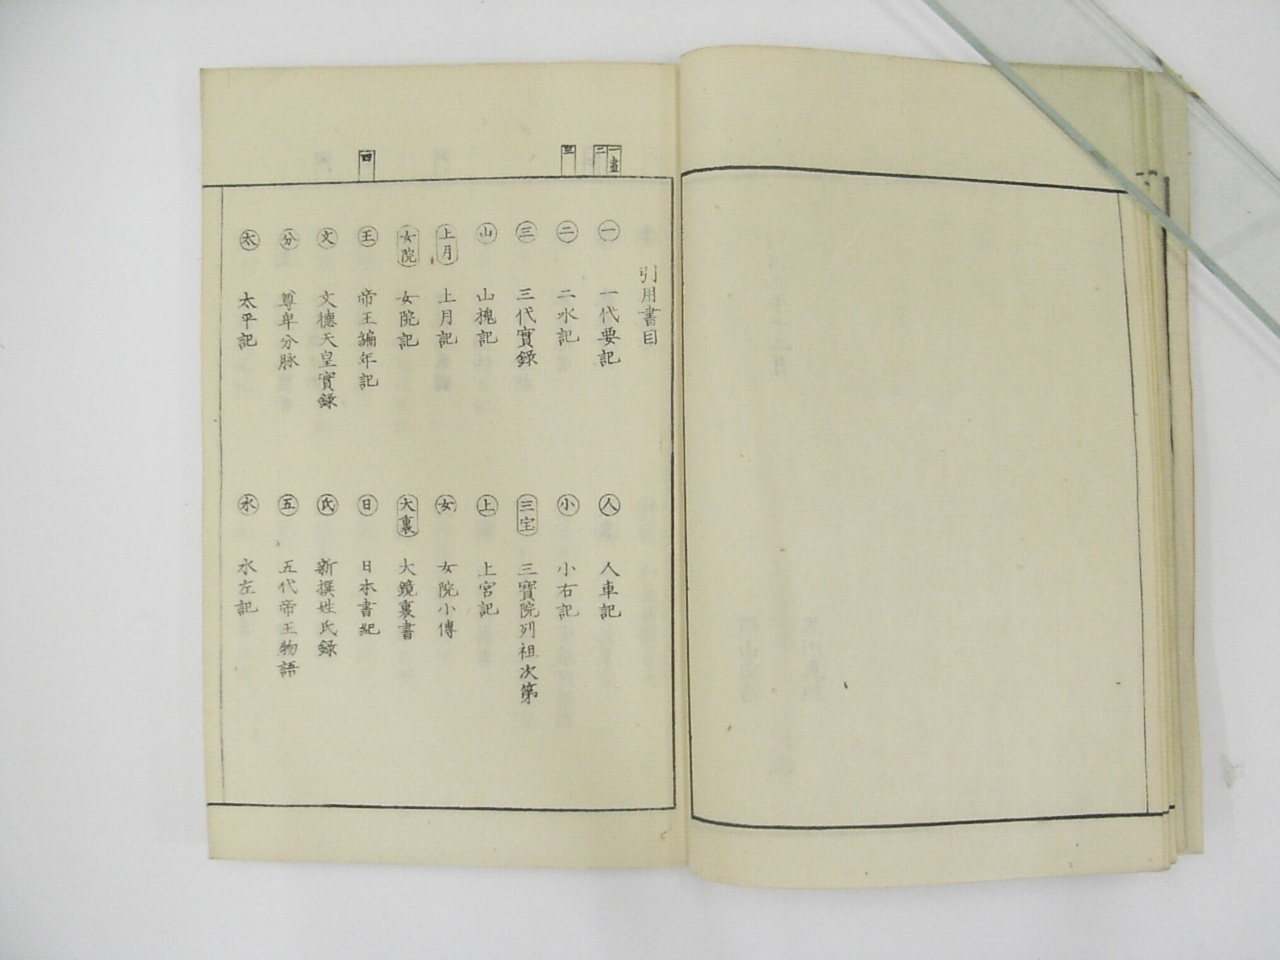 引用書目
一畫
二
三
四
一 一代要記
人 人車記
二 二水記
小 小右記
三 三代實錄
三宝 三寶院列祖次第
山 山槐記
上 上宮記
上月 上月記
女 女院小傳
女院 女院記
大裏 大鏡裏書
王 帝王編年記
日 日本書紀
文 文德天皇實錄
氏 新撰姓氏錄
分 尊卑分脉
五 五代帝王物語
太 太平記
水 水左記